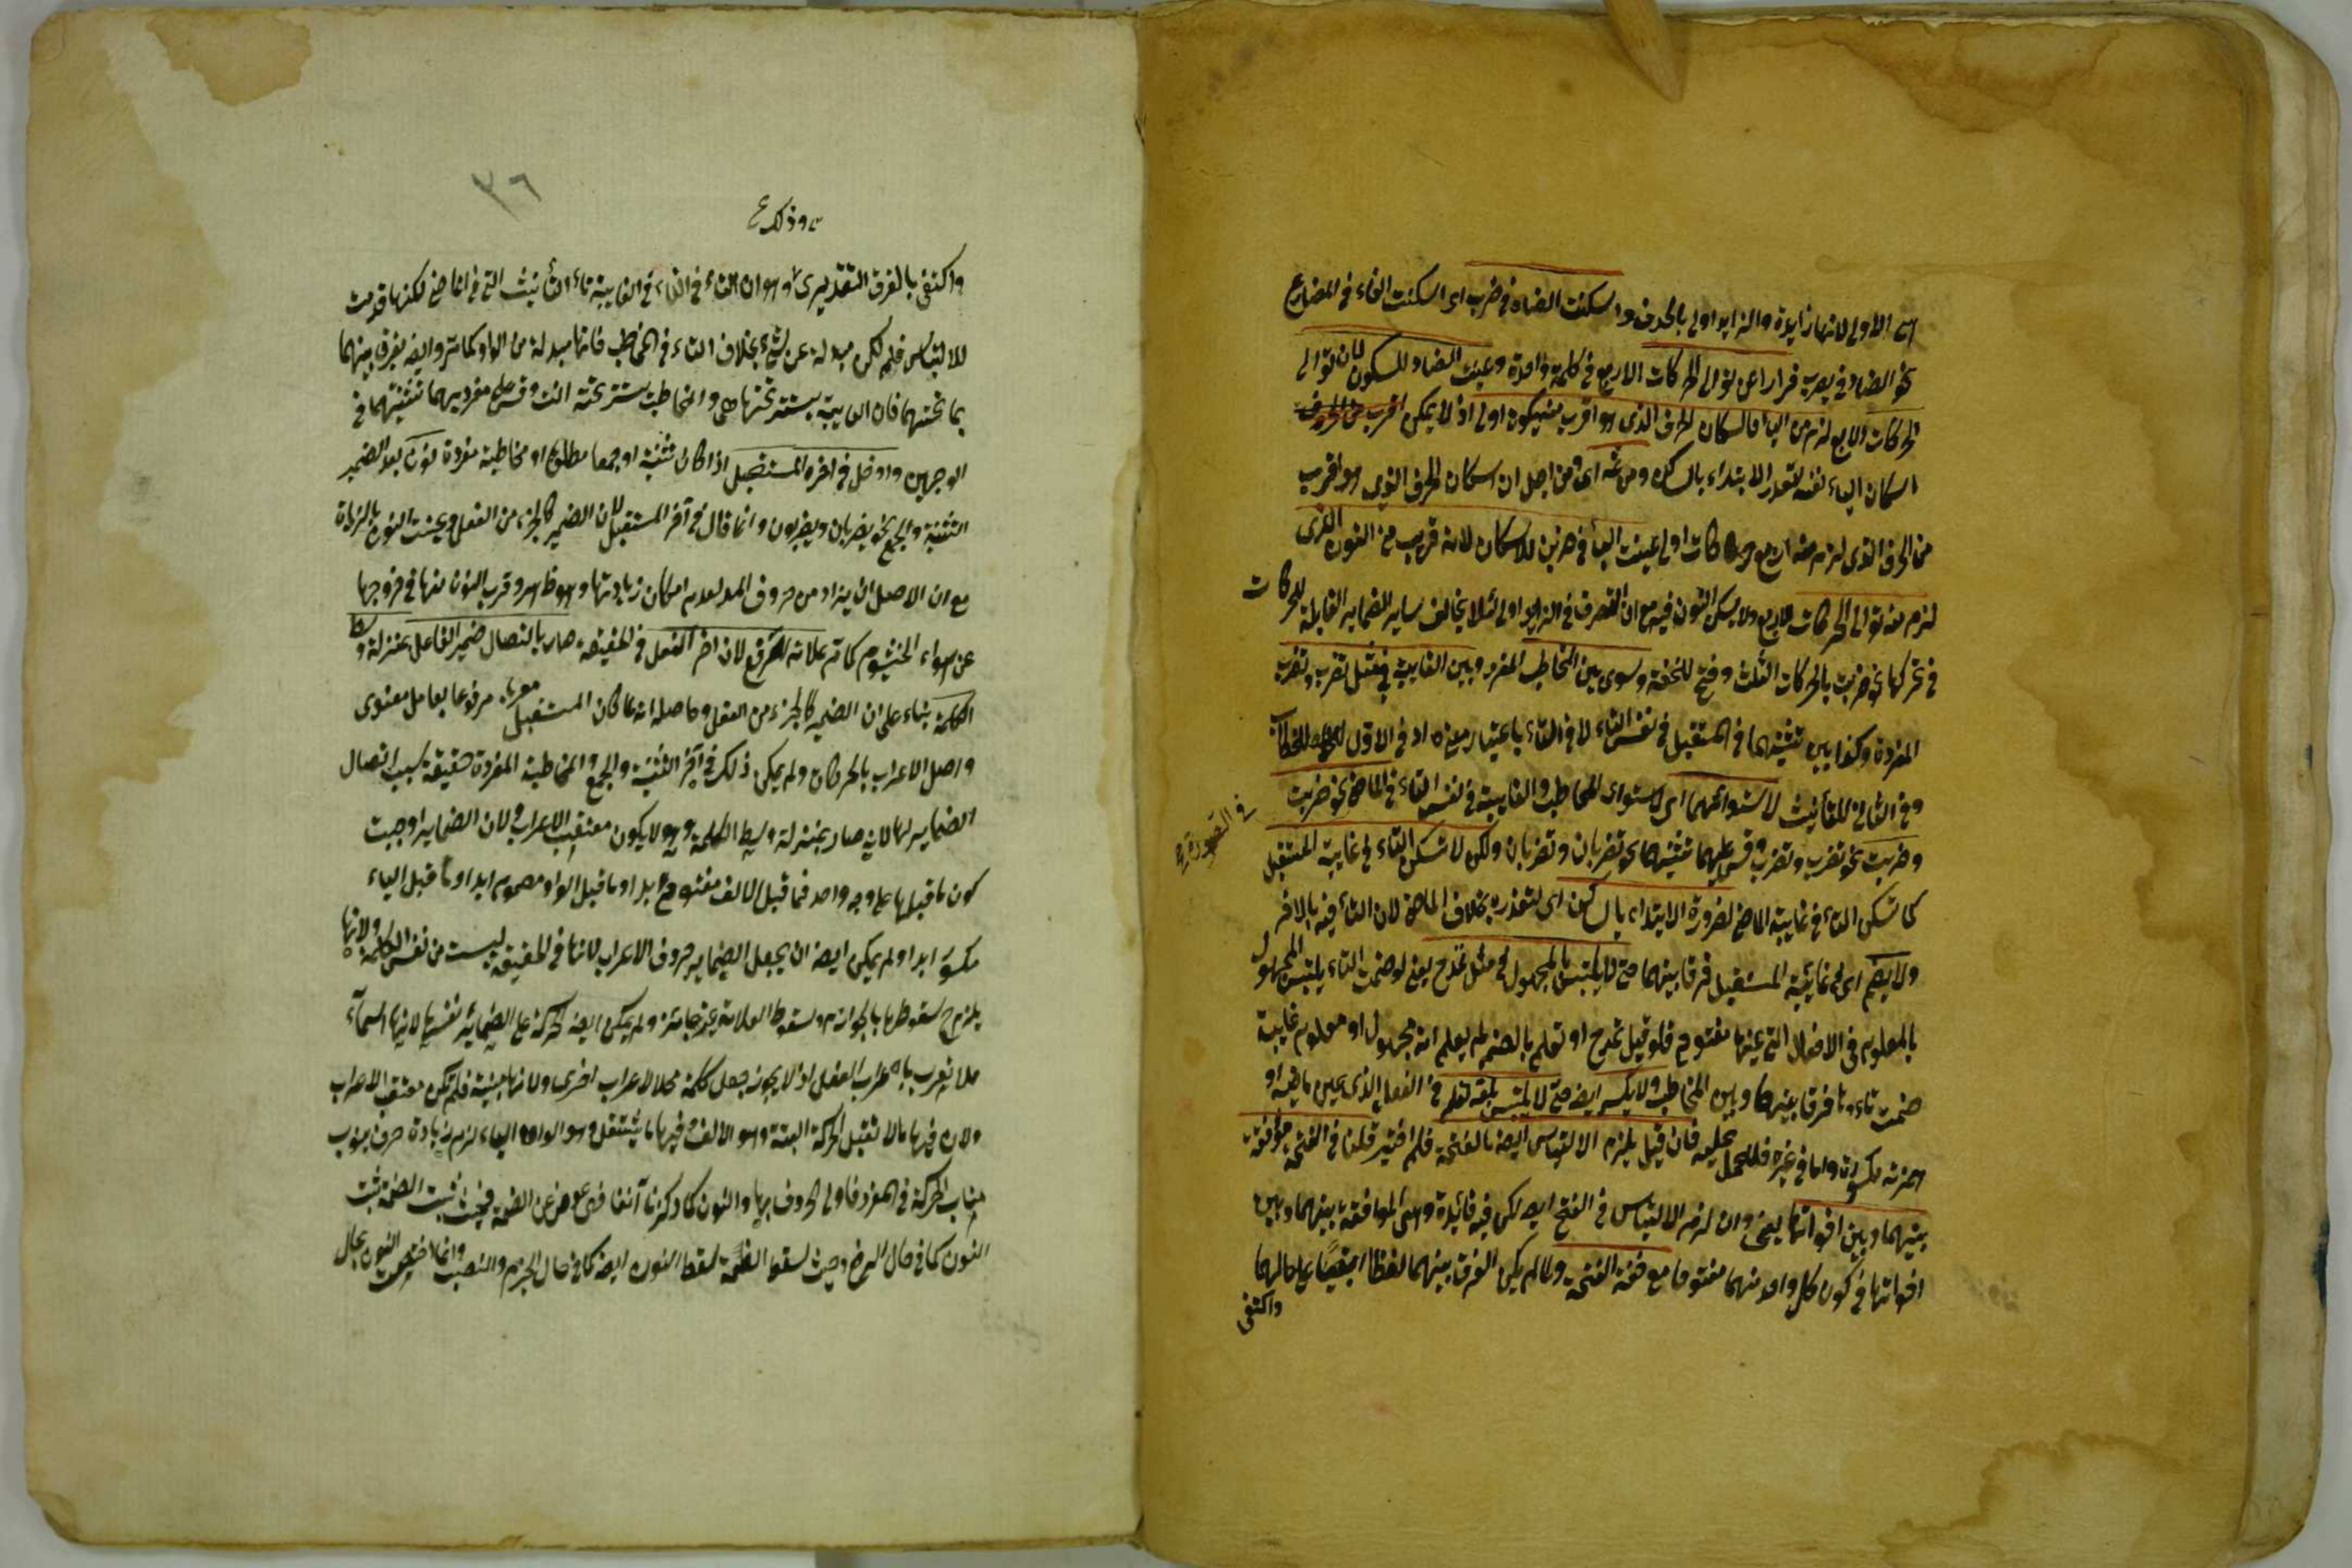 الاولى لانها زايدة والزايد اولى بالحذف واسكنت الضاد في يضرب اى اسكنت الفاء في المضارع
نحو الضاد في يضرب فرارا عن توالى الحركات الاربع في كلمة واحدة وعينت الضاد للسكون لان توالى
الحركات الاربع لزم من الياء فاسكان الحرف الذى هو اقرب منه يكون اولى اذ لا يمكن
اسكان الياء نفسه لتعذر الابتداء بالساكن ومن ثمه اى ومن اجل ان اسكان الحرف الذى هو اقرب
من الحرف الذى لزم منه اربع حركات اولى عينت الباء في ضربن للاسكان لانه قريب من النون الذى
لزم منه توالى الحركات الاربع ولا يسكن النون فيه مع ان التصرف في الزايد اولى لئلا يخالف ساير الضماير القابلة للحركات
في تحركها نحو ضربت بالحركات الثلث وفتح للخفة وسوى بين المخاطب المفرد وبين الغايبة في مثل تضرب وتضرب
المفردة وكذا بين تثنيتهما في المستقبل في نفس التاء لا في التاء باعتبار معناه اذ في الاول للخطاب
وفي الثانى للتأنيث لاستوائهما اى لاستواء المخاطب والغايبة في نفس التاء في الماضى نحو ضربت
وضربت نحو تضرب وتضرب وقس عليهما تثنيتهما نحو تضربان وتضربان ولكن لا تسكن التاء في غايبة المستقبل
في الصورة
كما تسكن التاء في غايبة الماضى لضرورة الابتداء بالساكن اى لتعذره بخلاف الماضى لان التاء فيه بالاخر
ولا يضم اى في غايبة المستقبل فرقا بينهما حتى لا يلتبس بالمجهول في مثل تمدح يعنى لو ضمت التاء يلتبس المجهول
بالمعلوم في الافعال التى عينها مفتوح فلو قيل تمدح او تعلم بالضم لم يعلم انه مجهول او معلوم غايبة
ضمت تاءها فرقا بينها وبين المخاطب ولا يكسر ايضا حتى لا يلتبس بلغة تعلم في الفعل الذى عين ماضيه او
همزته مكسورة واما في غيره فللحمل عليه فان قيل يلزم الالتباس ايضا بالفتحة فلم اختير قلنا في الفتحة موافقة
بينهما وبين اخواتها يعنى وان لزم الالتباس في الفتح ايضا لكن فيه فائدة وهى الموافقة بينهما وبين
اخواتها في كون كل واحد منهما مفتوحا مع خفة الفتحة ولما لم يكن الفرق بينهما لفظا ابقيا على حالهما
واكتفى
٣٦
وذلك
واكتفى بالفرق التقديرى وهو ان التاء في الغايبة تاء التأنيث التى في الماضى لكنها قدمت
للالتباس فلم تكن مبدلة عن شئ بخلاف التاء في المخاطب فانها مبدلة من الواو كما مر وايضا يفرق بينهما
بما تحتهما فان الغايبة يستتر تحتها هى والمخاطب يستتر تحته انت وقس على مفرديهما تثنيتهما في
الوجهين وادخل في اخر المستقبل اذا كان تثنية او جمعا مطلقا او مخاطبة مفردة نون بعد الضمير
التثنية والجمع نحو يضربان ويضربون وانما قال في آخر المستقبل لان الضمير كالجزء من الفعل وعينت النون بالزيادة
مع ان الاصل ان يزاد من حروف المد لعدم امكان زيادتها وهو ظاهر وقرب النون منها في خروجها
عن هواء الخيشوم كما مر علامة للرفع لان اخر الفعل في الحقيقة صار باتصال ضمير الفاعل بمنزلة وسط
الكلمة بناء على ان الضمير كالجزء من الفعل وحاصله انه لما كان المستقبل معربا مرفوعا بعامل معنوى
واصل الاعراب بالحركات ولم يمكن ذلك في آخر التثنية والجمع والمخاطبة المفردة حقيقة بسبب اتصال
الضماير لها لانه صار بمنزلة وسط الكلمة وهو لا يكون معتقب الاعراب ولان الضماير اوجبت
كون ما قبلها على وجه واحد فما قبل الالف مفتوح ابدا وما قبل الواو مضموم ابدا وما قبل الياء
مكسور ابدا ولم يمكن ايضا ان يجعل الضماير حروف الاعراب لانها في الحقيقة ليست من نفس الكلمة ولانها
يلزم ح سقوطها بالجوازم وسقوط العلامة غير جايز ولم يمكن ايضا حركة على الضمائر نفسها لانها اسماء
فلا تعرب باعراب الفعل اذ لا يجوز جعل كلمة محلا لاعراب اخرى ولانها مبنية فلم تكن معتقب الاعراب
ولان فيها ما لا تقبل الحركة البتة وهو الالف وفيها ما يستثقل وهو الواو والياء لزم زيادة حرف ينوب
مناب الحركة في المفرد فاولى الحروف بها والنون كما ذكرنا آنفا فهى عوض عن الضمة فحيث ثبت الضمة ثبت
النون كما في حال الرفع وحيث سقط الضمة سقط النون ايضا كما في حال الجزم والنصب وانما اختص النون بحال